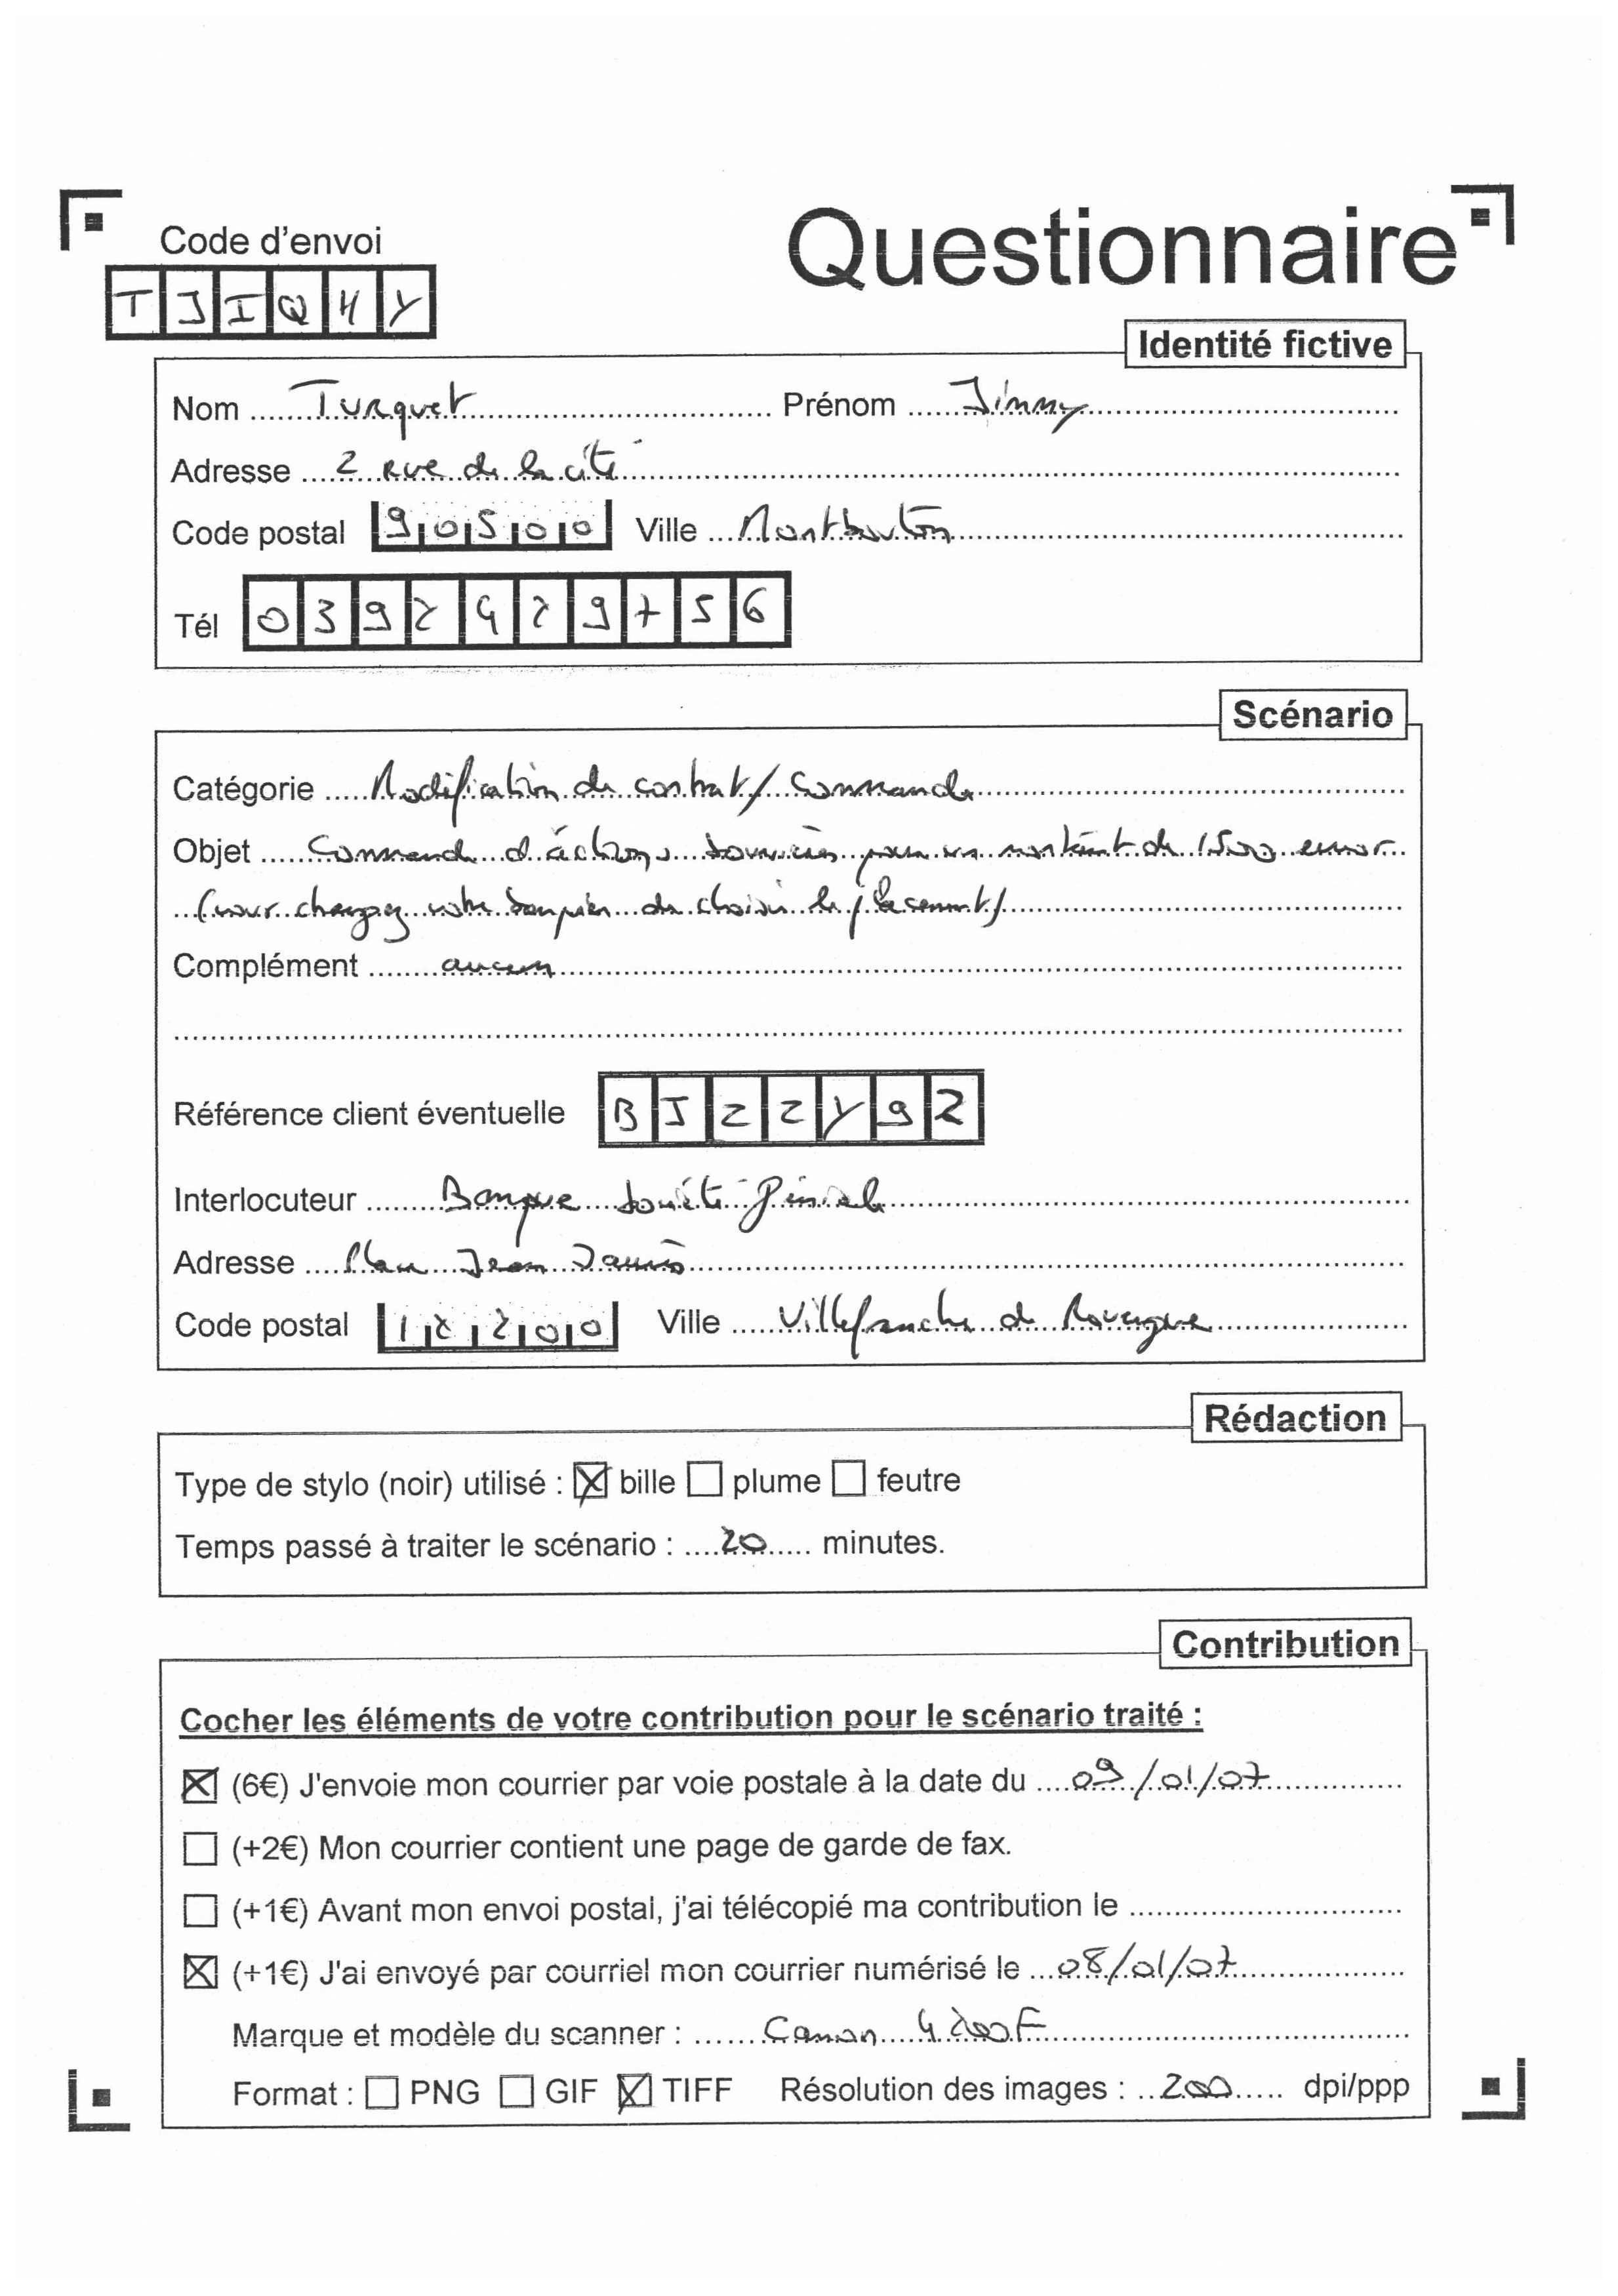 Code d'envoi
Questionnaire
TJIQHY
Identité fictive
Nom Turquet Prénom Jimmy
Adresse 2 rue de la cité
Code postal 90500 Ville Montbouton
Tél 0392429756
Scénario
Catégorie Modification de contrat / Commande
Objet Commande d'actions boursières pour un montant de 1500 euros
(vous chargez votre banquier de choisir le placement)
Complément aucun
Référence client éventuelle BJZZY92
Interlocuteur Banque Société Générale
Adresse Place Jean Jaurès
Code postal 12200 Ville Villefranche de Rouergue
Rédaction
Type de stylo (noir) utilisé : bille plume feutre
Temps passé à traiter le scénario : 20 minutes.
Contribution
Cocher les éléments de votre contribution pour le scénario traité :
(6€) J'envoie mon courrier par voie postale à la date du 09/01/07
(+2€) Mon courrier contient une page de garde de fax.
(+1€) Avant mon envoi postal, j'ai télécopié ma contribution le
(+1€) J'ai envoyé par courriel mon courrier numérisé le 08/01/07
Marque et modèle du scanner : Canon 4200F
Format : PNG GIF TIFF Résolution des images : 200 dpi/ppp